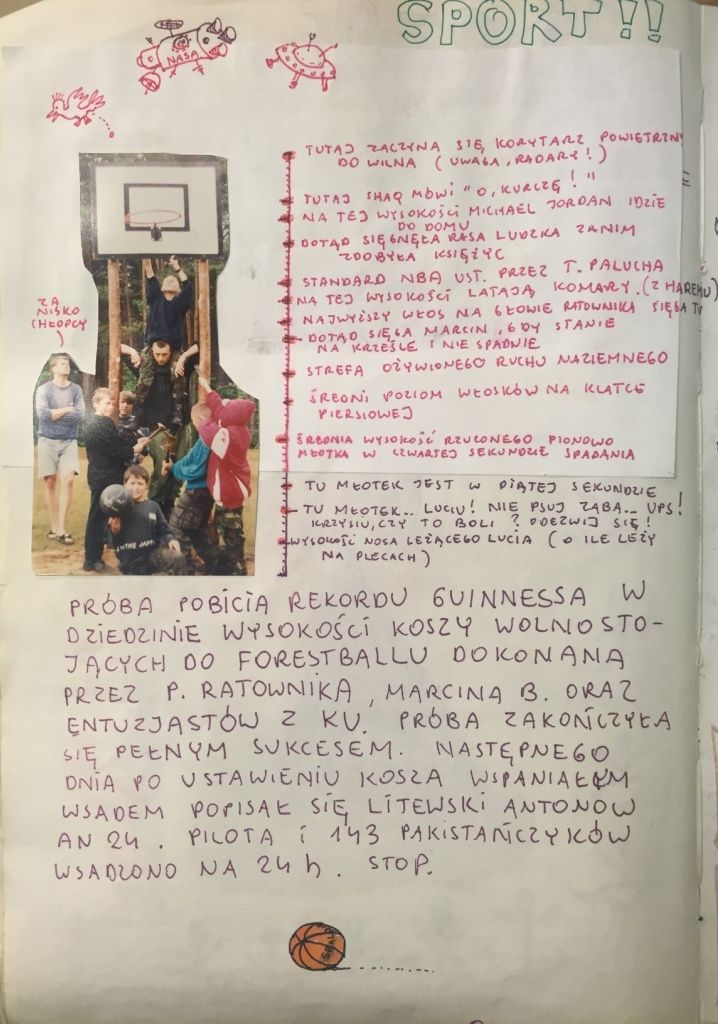 SPORT!!
NASA
TUTAJ ZACZYNA SIĘ KORYTARZ POWIETRZNY
DO WILNA (UWAGA, RADARY!)
TUTAJ SHAQ MÓWI "O, KURCZĘ!"
NA TEJ WYSOKOŚCI MICHAEL JORDAN IDZIE
DO DOMU
DOTĄD SIĘGNĘŁA RASA LUDZKA ZANIM
ZDOBYŁA KSIĘŻYC
STANDARD NBA UST. PRZEZ T. PALUCHA
NA TEJ WYSOKOŚCI LATAJĄ KOMARY. (Z HAREMU)
NAJWYŻSZY WŁOS NA GŁOWIE RATOWNIKA SIĘGA TU
DOTĄD SIĘGA MARCIN, GDY STANIE
NA KRZEŚLE I NIE SPADNIE
STREFA OŻYWIONEGO RUCHU NAZIEMNEGO
ŚREDNI POZIOM WŁOSKÓW NA KLATCE
PIERSIOWEJ
ŚREDNIA WYSOKOŚĆ RZUCONEGO PIONOWO
MŁOTKA W CZWARTEJ SEKUNDZIE SPADANIA
TU MŁOTEK JEST W PIĄTEJ SEKUNDZIE!
TU MŁOTEK... LUCIU! NIE PSUJ ZĄBA... UPS!
KRZYSIU, CZY TO BOLI? ODEZWIJ SIĘ!
WYSOKOŚĆ NOSA LEŻĄCEGO LUCIA (O ILE LEŻY
NA PLECACH)
ZA
NISKO
CHŁOPCY
PRÓBA POBICIA REKORDU GUINNESSA W
DZIEDZINIE WYSOKOŚCI KOSZY WOLNOSTO-
JĄCYCH DO FORESTBALLU DOKONANA
PRZEZ P. RATOWNIKA, MARCINA B. ORAZ
ENTUZJASTÓW Z KU. PRÓBA ZAKOŃCZYŁA
SIĘ PEŁNYM SUKCESEM. NASTĘPNEGO
DNIA PO USTAWIENIU KOSZA WSPANIAŁYM
WSADEM POPISAŁ SIĘ LITEWSKI ANTONOW
AN 24. PILOTA I 143 PAKISTAŃCZYKÓW
WSADZONO NA 24 h. STOP.